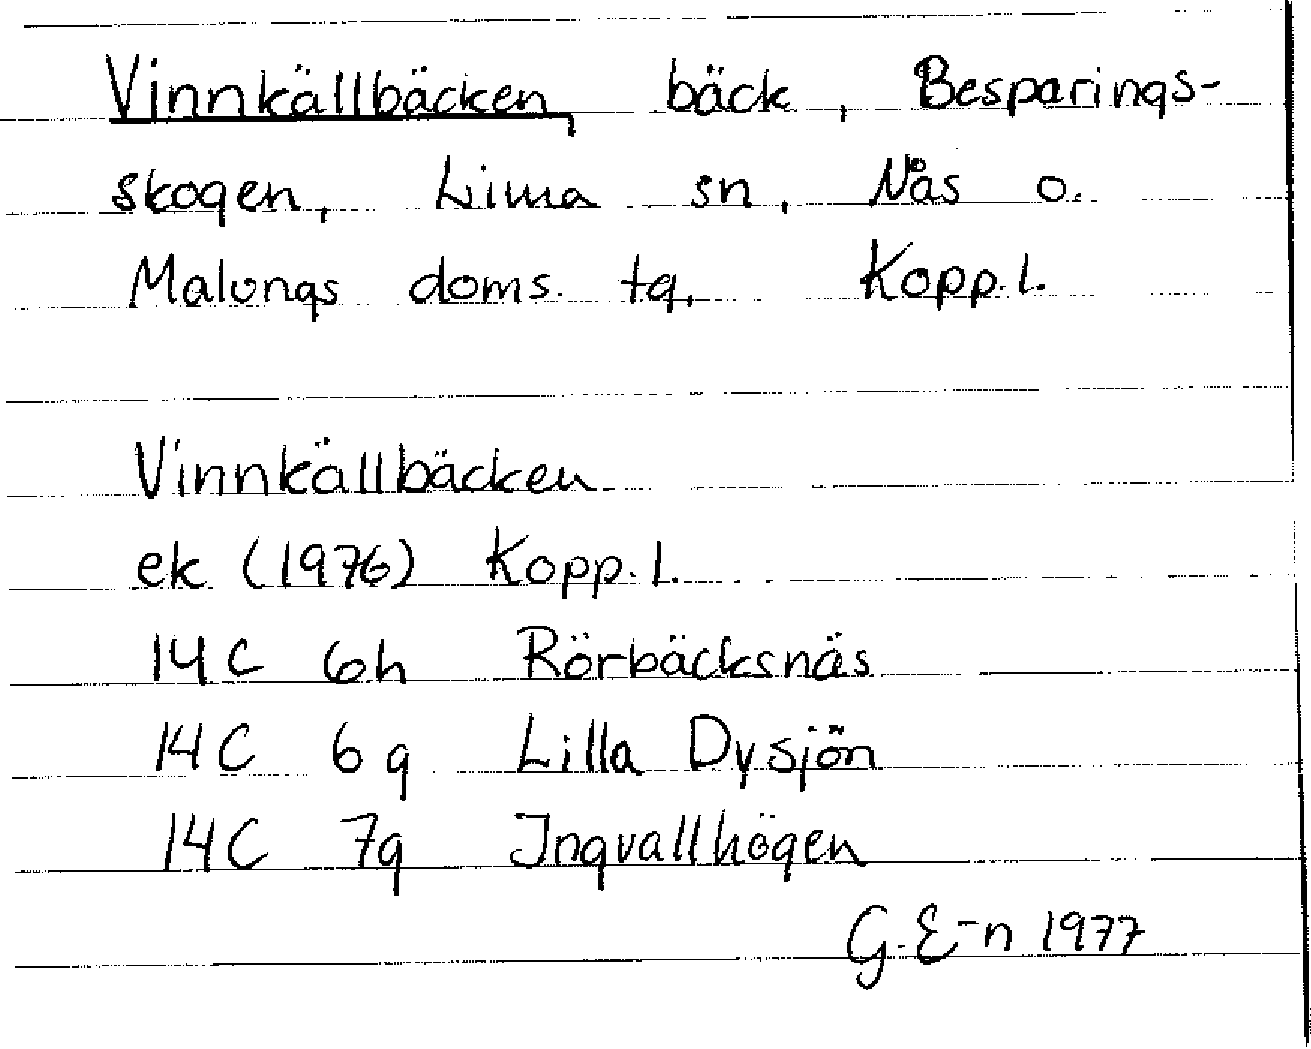 Vinnkällbäcken, bäck, Besparings-
skogen, Lima sn, Nås o.
Malungs doms. tg, Kopp. l.
Vinnkällbäcken
ek (1976) Kopp. l.
14C 6h Rörbäcksnäs
14C 6g Lilla Dysjön
14C 7g Ingvallhögen
G. E-n 1977